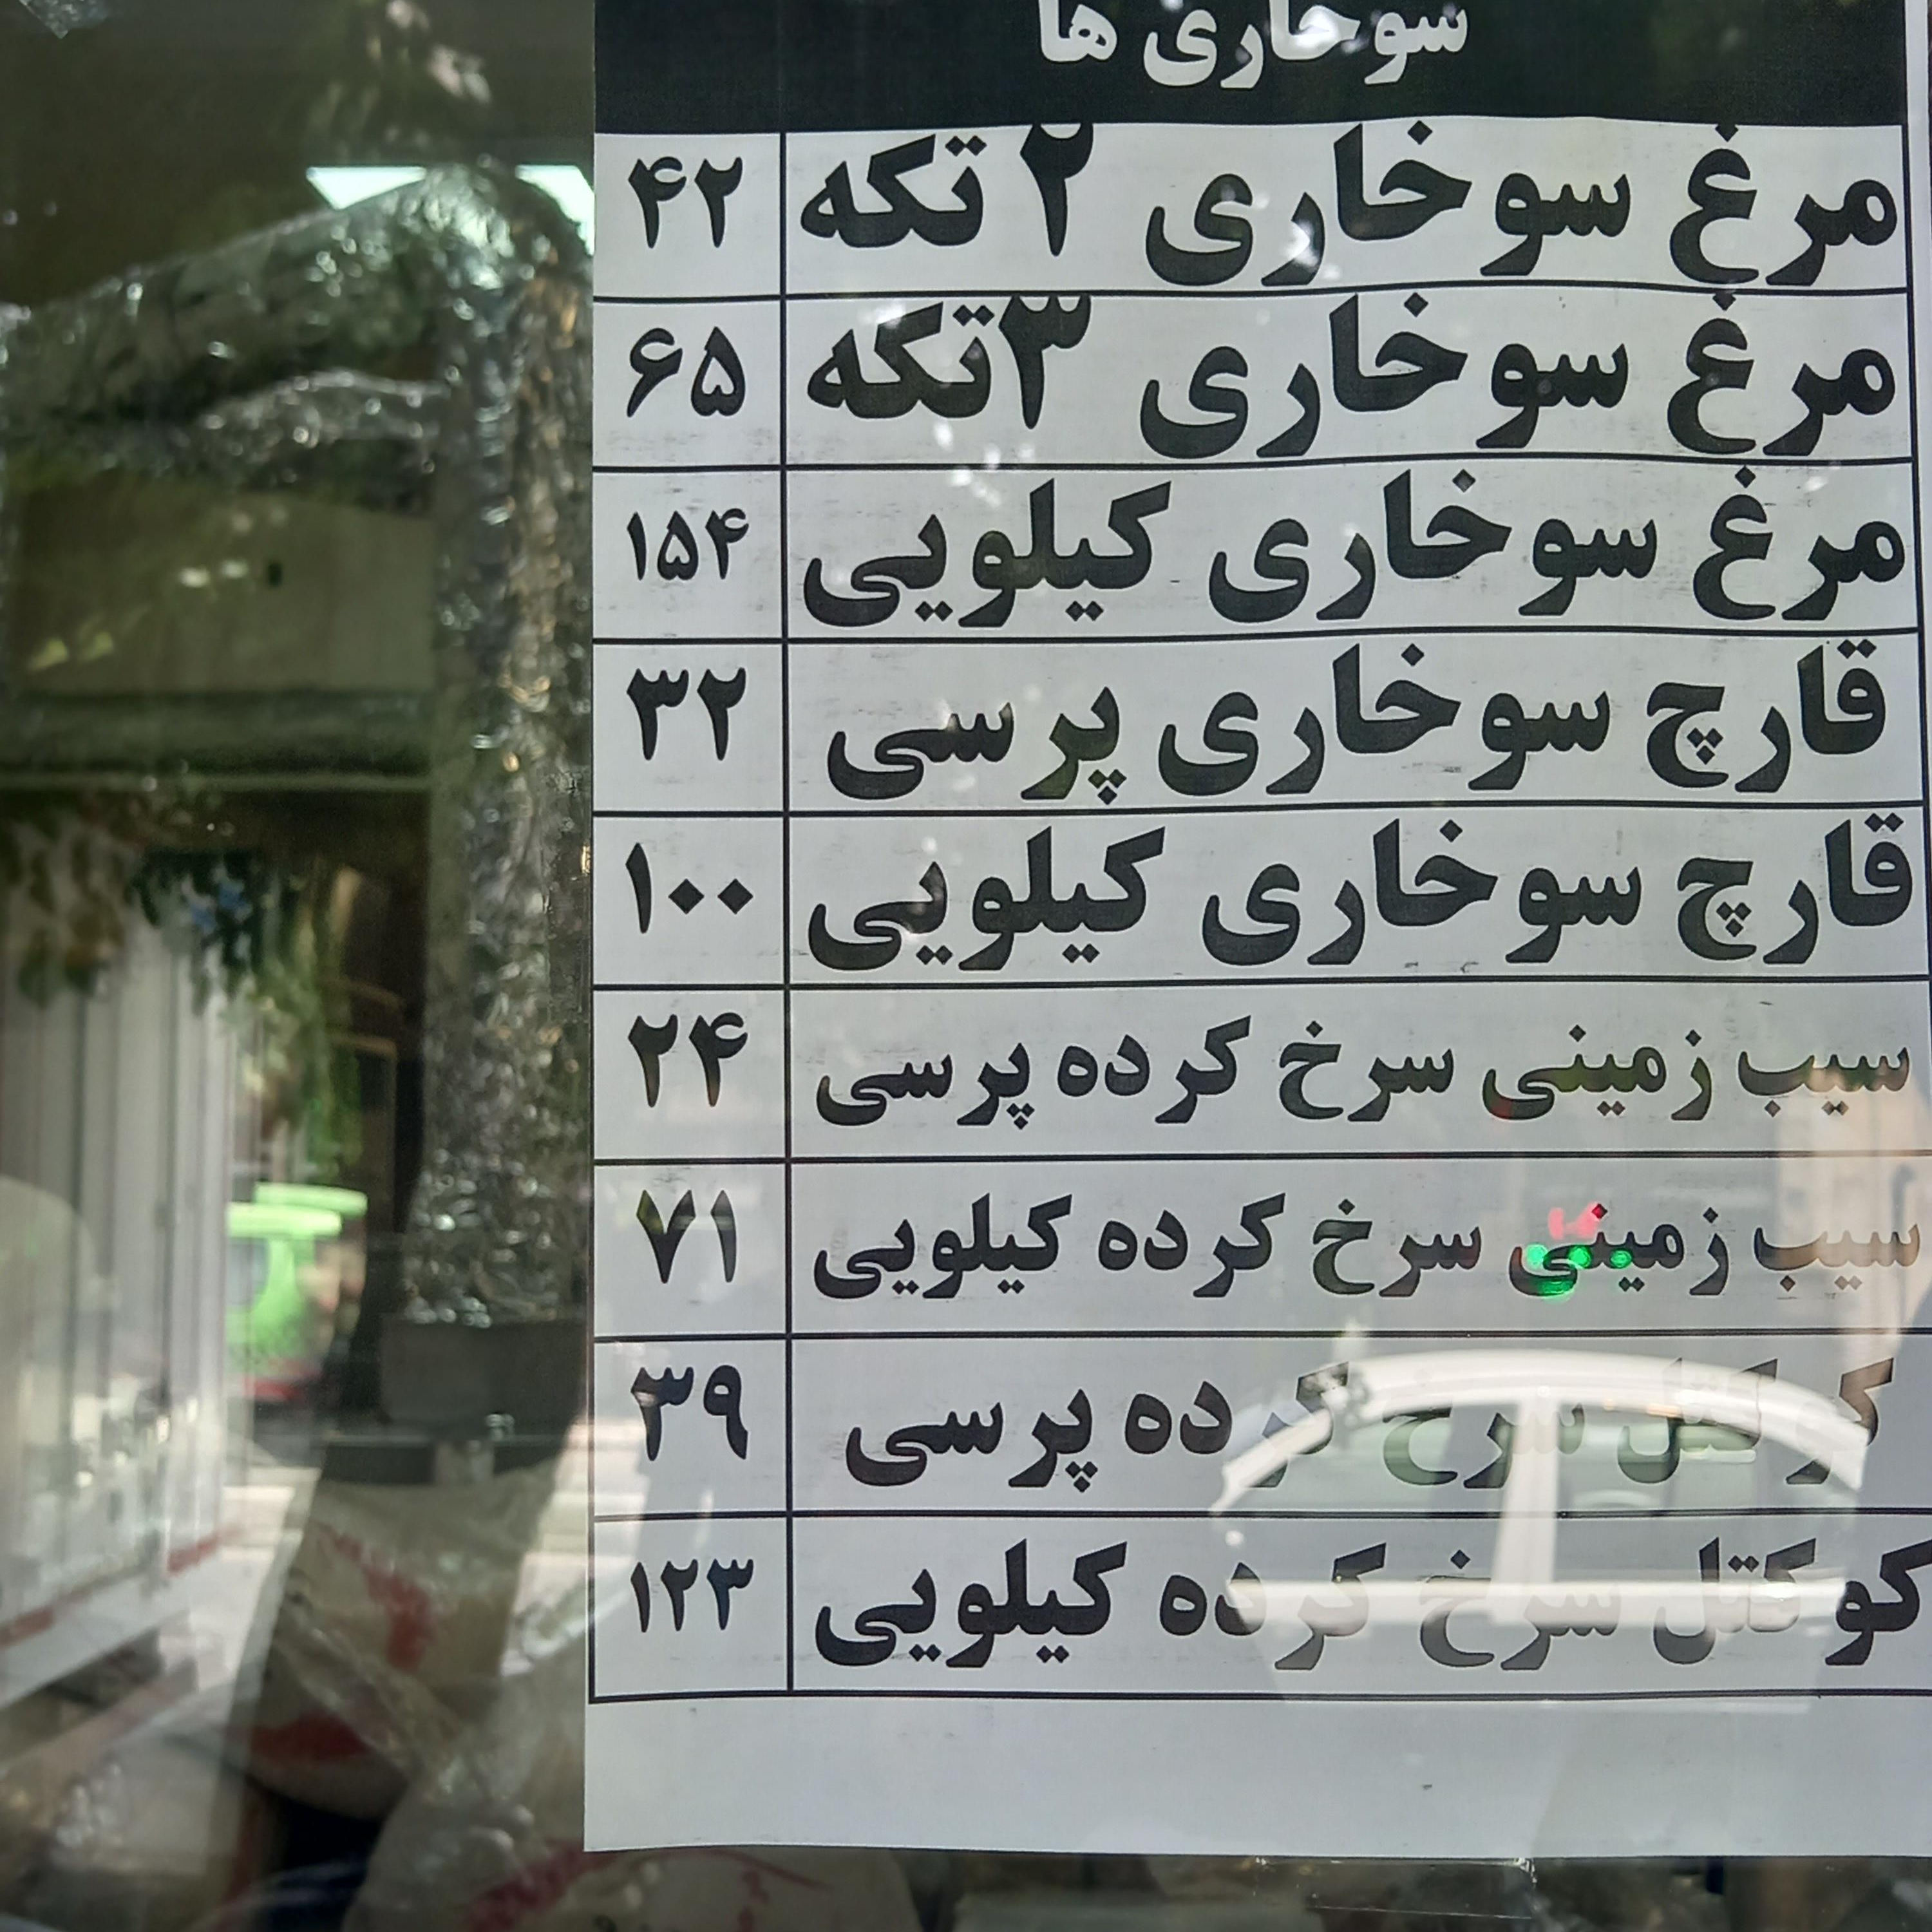 سوخاری ها
مرغ سوخاری ۲ تکه ۴۲
مرغ سوخاری ۳تکه ۶۵
مرغ سوخاری کیلویی ۱۵۴
قارچ سوخاری پرسی ۳۲
قارچ سوخاری کیلویی ۱۰۰
سیب زمینی سرخ کرده پرسی ۲۴
سیب زمینی سرخ کرده کیلویی ۷۱
کوکتل سرخ کرده پرسی ۳۹
کوکتل سرخ کرده کیلویی ۱۲۳